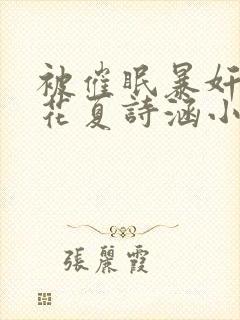 被催眠暴奸
花夏詩涵小
張麗霞